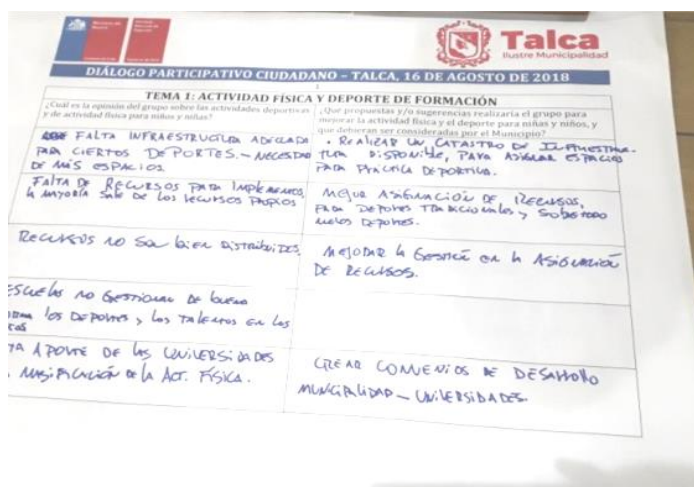 Talca
Ilustre Municipalidad
DIÁLOGO PARTICIPATIVO CIUDADANO – TALCA, 16 DE AGOSTO DE 2018
TEMA 1: ACTIVIDAD FÍSICA Y DEPORTE DE FORMACIÓN
¿Cuál es la opinión del grupo sobre las actividades deportivas
y de actividad física para niños y niñas?
¿Qué propuestas y/o sugerencias realizaría el grupo para
mejorar la actividad física y el deporte para niñas y niños, y
que debieran ser consideradas por el Municipio?
FALTA INFRAESTRUCTURA ADECUADA
PARA CIERTOS DEPORTES. – NECESIDAD
DE MÁS ESPACIOS.
• REALIZAR UN CATASTRO DE INFRAESTRUC-
TURA DISPONIBLE, PARA ASIGNAR ESPACIOS
PARA PRÁCTICA DEPORTIVA.
FALTA DE RECURSOS PARA IMPLEMENTOS,
LA MAYORÍA SALE DE LOS RECURSOS PROPIOS
MEJOR ASIGNACIÓN DE RECURSOS,
PARA DEPORTES TRADICIONALES Y SOBRETODO
DEPORTES.
RECURSOS NO SON BIEN DISTRIBUIDOS.
MEJORAR LA GESTIÓN EN LA ASIGNACIÓN
DE RECURSOS.
ESCUELAS NO GESTIONAN DE BUENA
LOS DEPORTES Y LOS TALENTOS EN LOS
APORTE DE LAS UNIVERSIDADES
MASIFICACIÓN DE LA ACT. FÍSICA.
CREAR CONVENIOS DE DESARROLLO
MUNICIPALIDAD – UNIVERSIDADES.